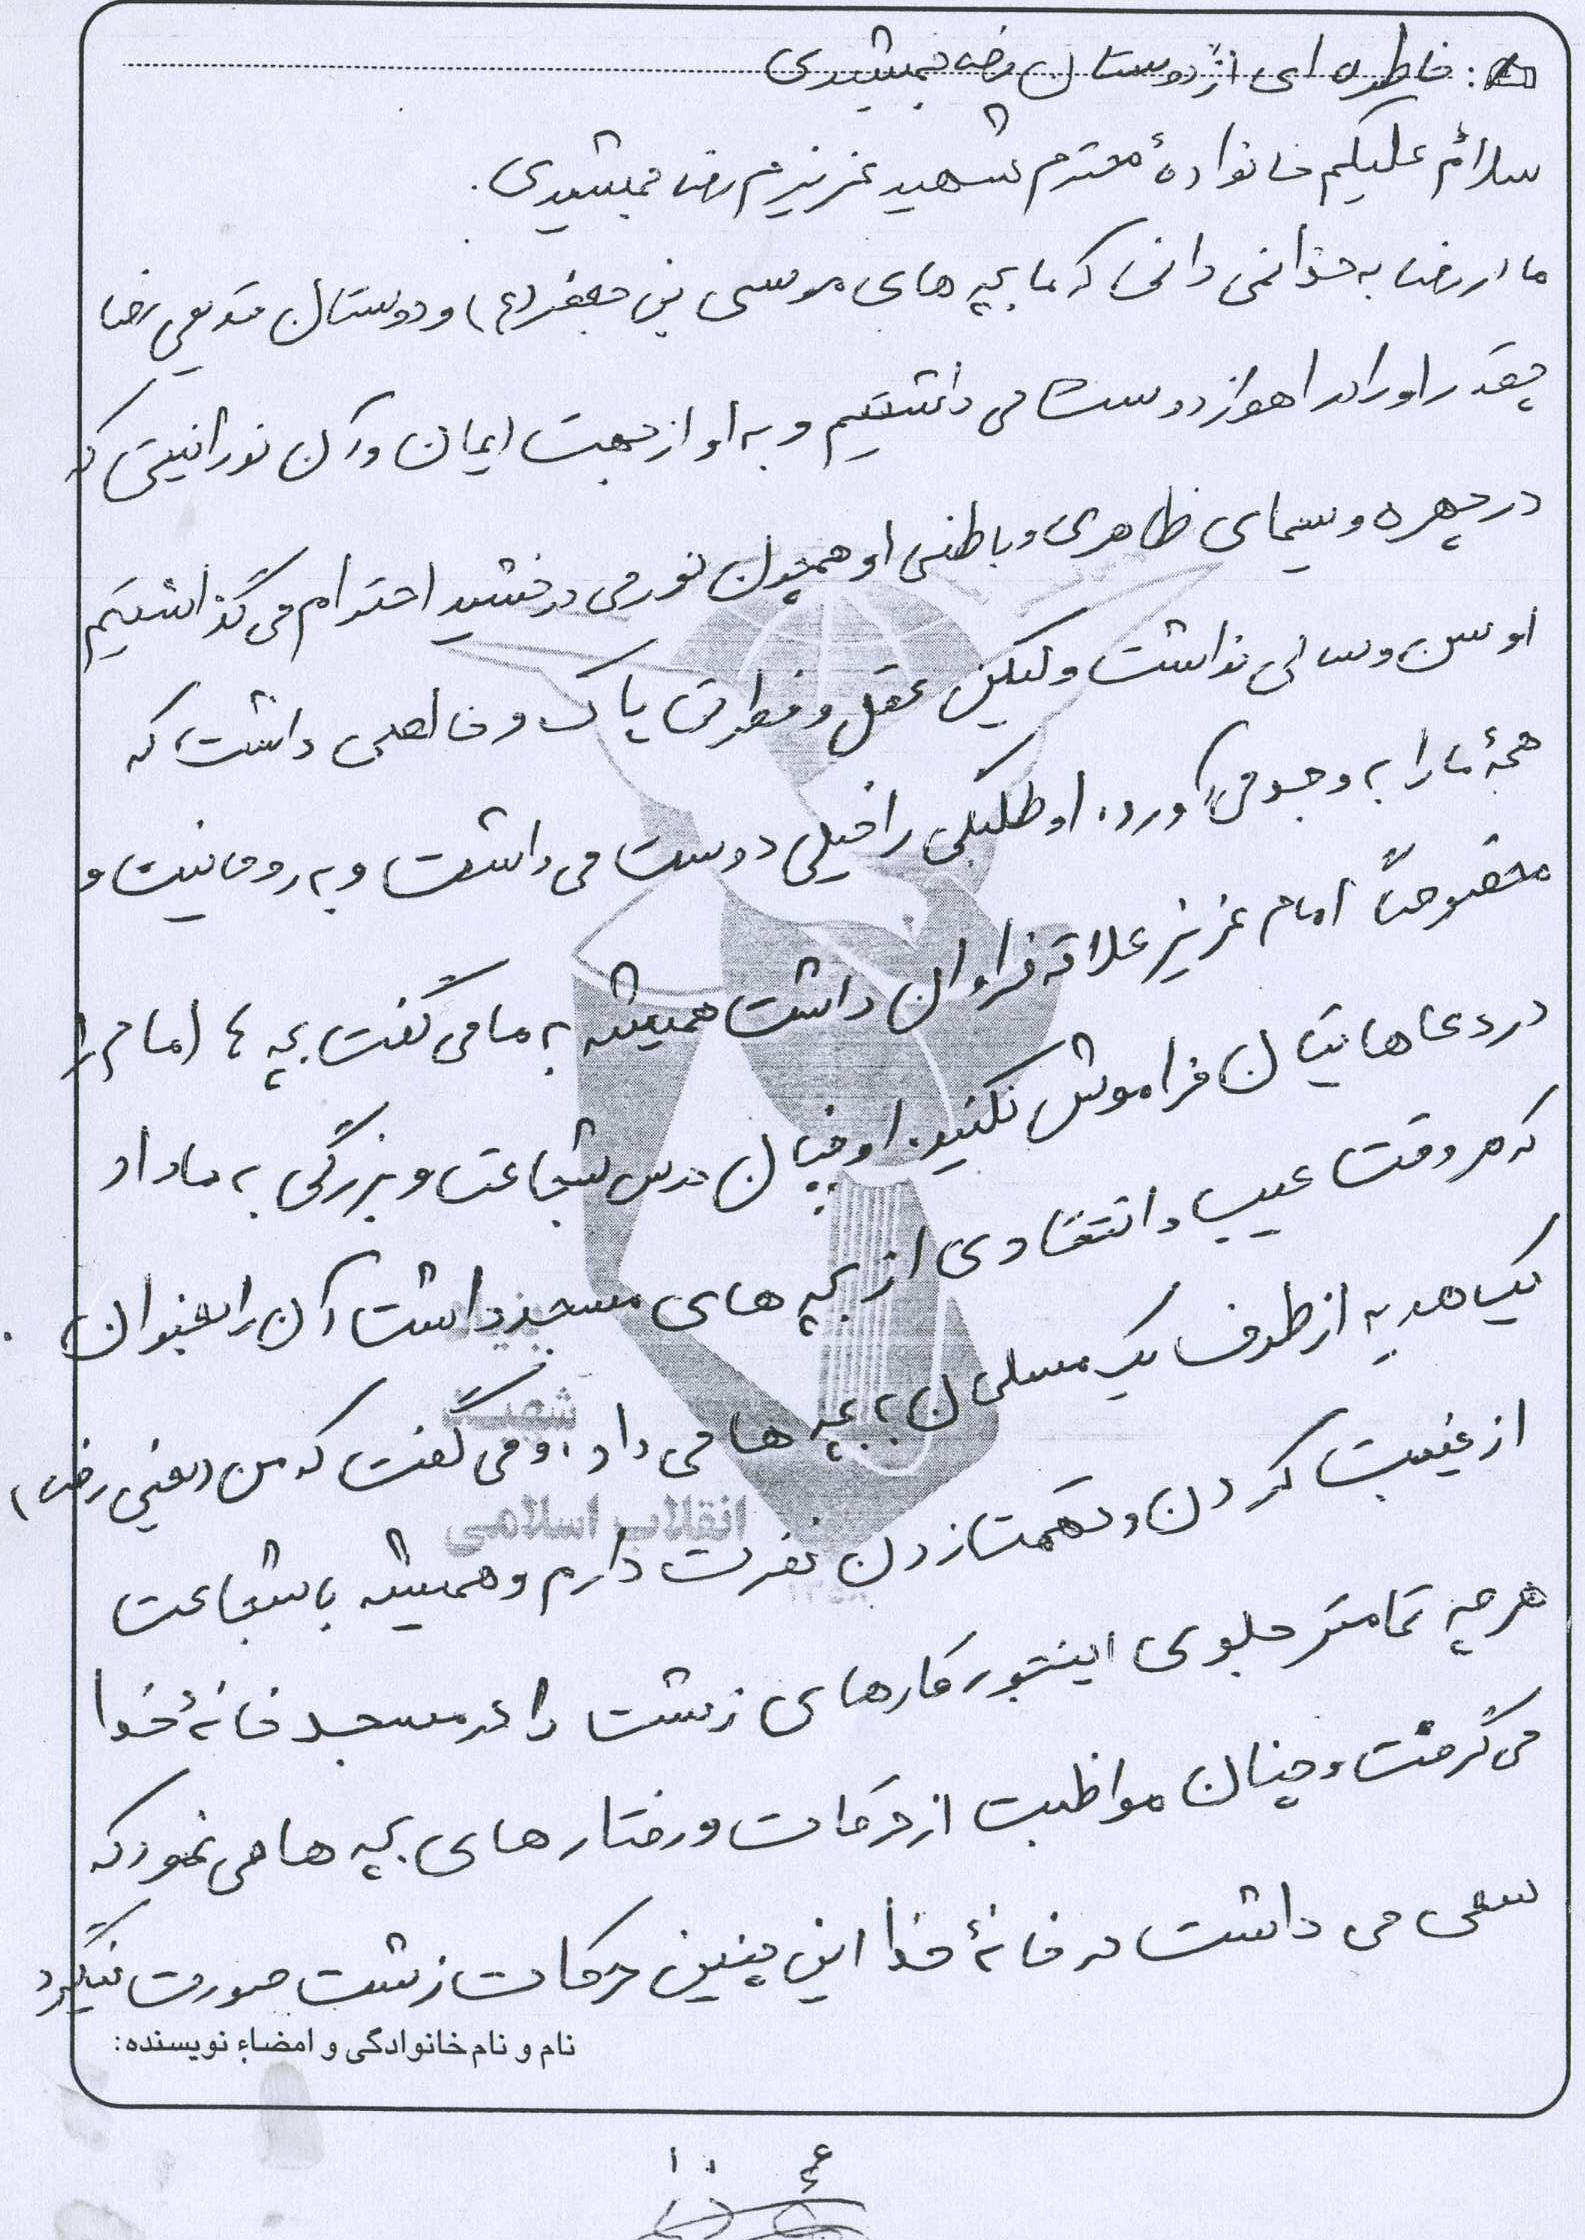 خاطره ای از دوستان رضا جمشیدی
سلام علیکم خانواده محترم شهید عزیزم رضا جمشیدی.
مادر رضا به خدا نمی دانی که ما بچه های موسی بن جعفر (ع) و دوستان قدیمی رضا
چقدر او را در اهواز دوست می داشتیم و به او از جهت ایمان و آن نورانیتی که
در چهره و سیمای ظاهری و باطنی او همچون نور می درخشید احترام می گذاشتیم
او سن و سالی نداشت ولیکن عقل و فطرتی پاک و خالصی داشت که
همهٔ ما را به وجد می آورد. او طلبگی را خیلی دوست می داشت و به روحانیت و
مخصوصاً امام عزیز علاقه فراوان داشت همیشه به ما می گفت بچه ها امام را
در دعاهایتان فراموش نکنید. او چنان درس شجاعت و بزرگی به ما داد
که هر وقت عیب و انتقادی از بچه های مسجد داشت آن را بعنوان
یک هدیه از طرف یک مسلمان به بچه ها می داد. و می گفت که من (یعنی رضا)
از غیبت کردن و تهمت زدن نفرت دارم و همیشه با شجاعت
هر چه تمامتر جلوی اینجور کارهای زشت را در مسجد خانهٔ خدا
می گرفت و چنان مواظبت از حرکات و رفتارهای بچه ها می نمود که
سعی می داشت در خانهٔ خدا این چنین حرکات زشت صورت نگیرد
نام و نام خانوادگی و امضاء نویسنده:
شهید
انقلاب اسلامی